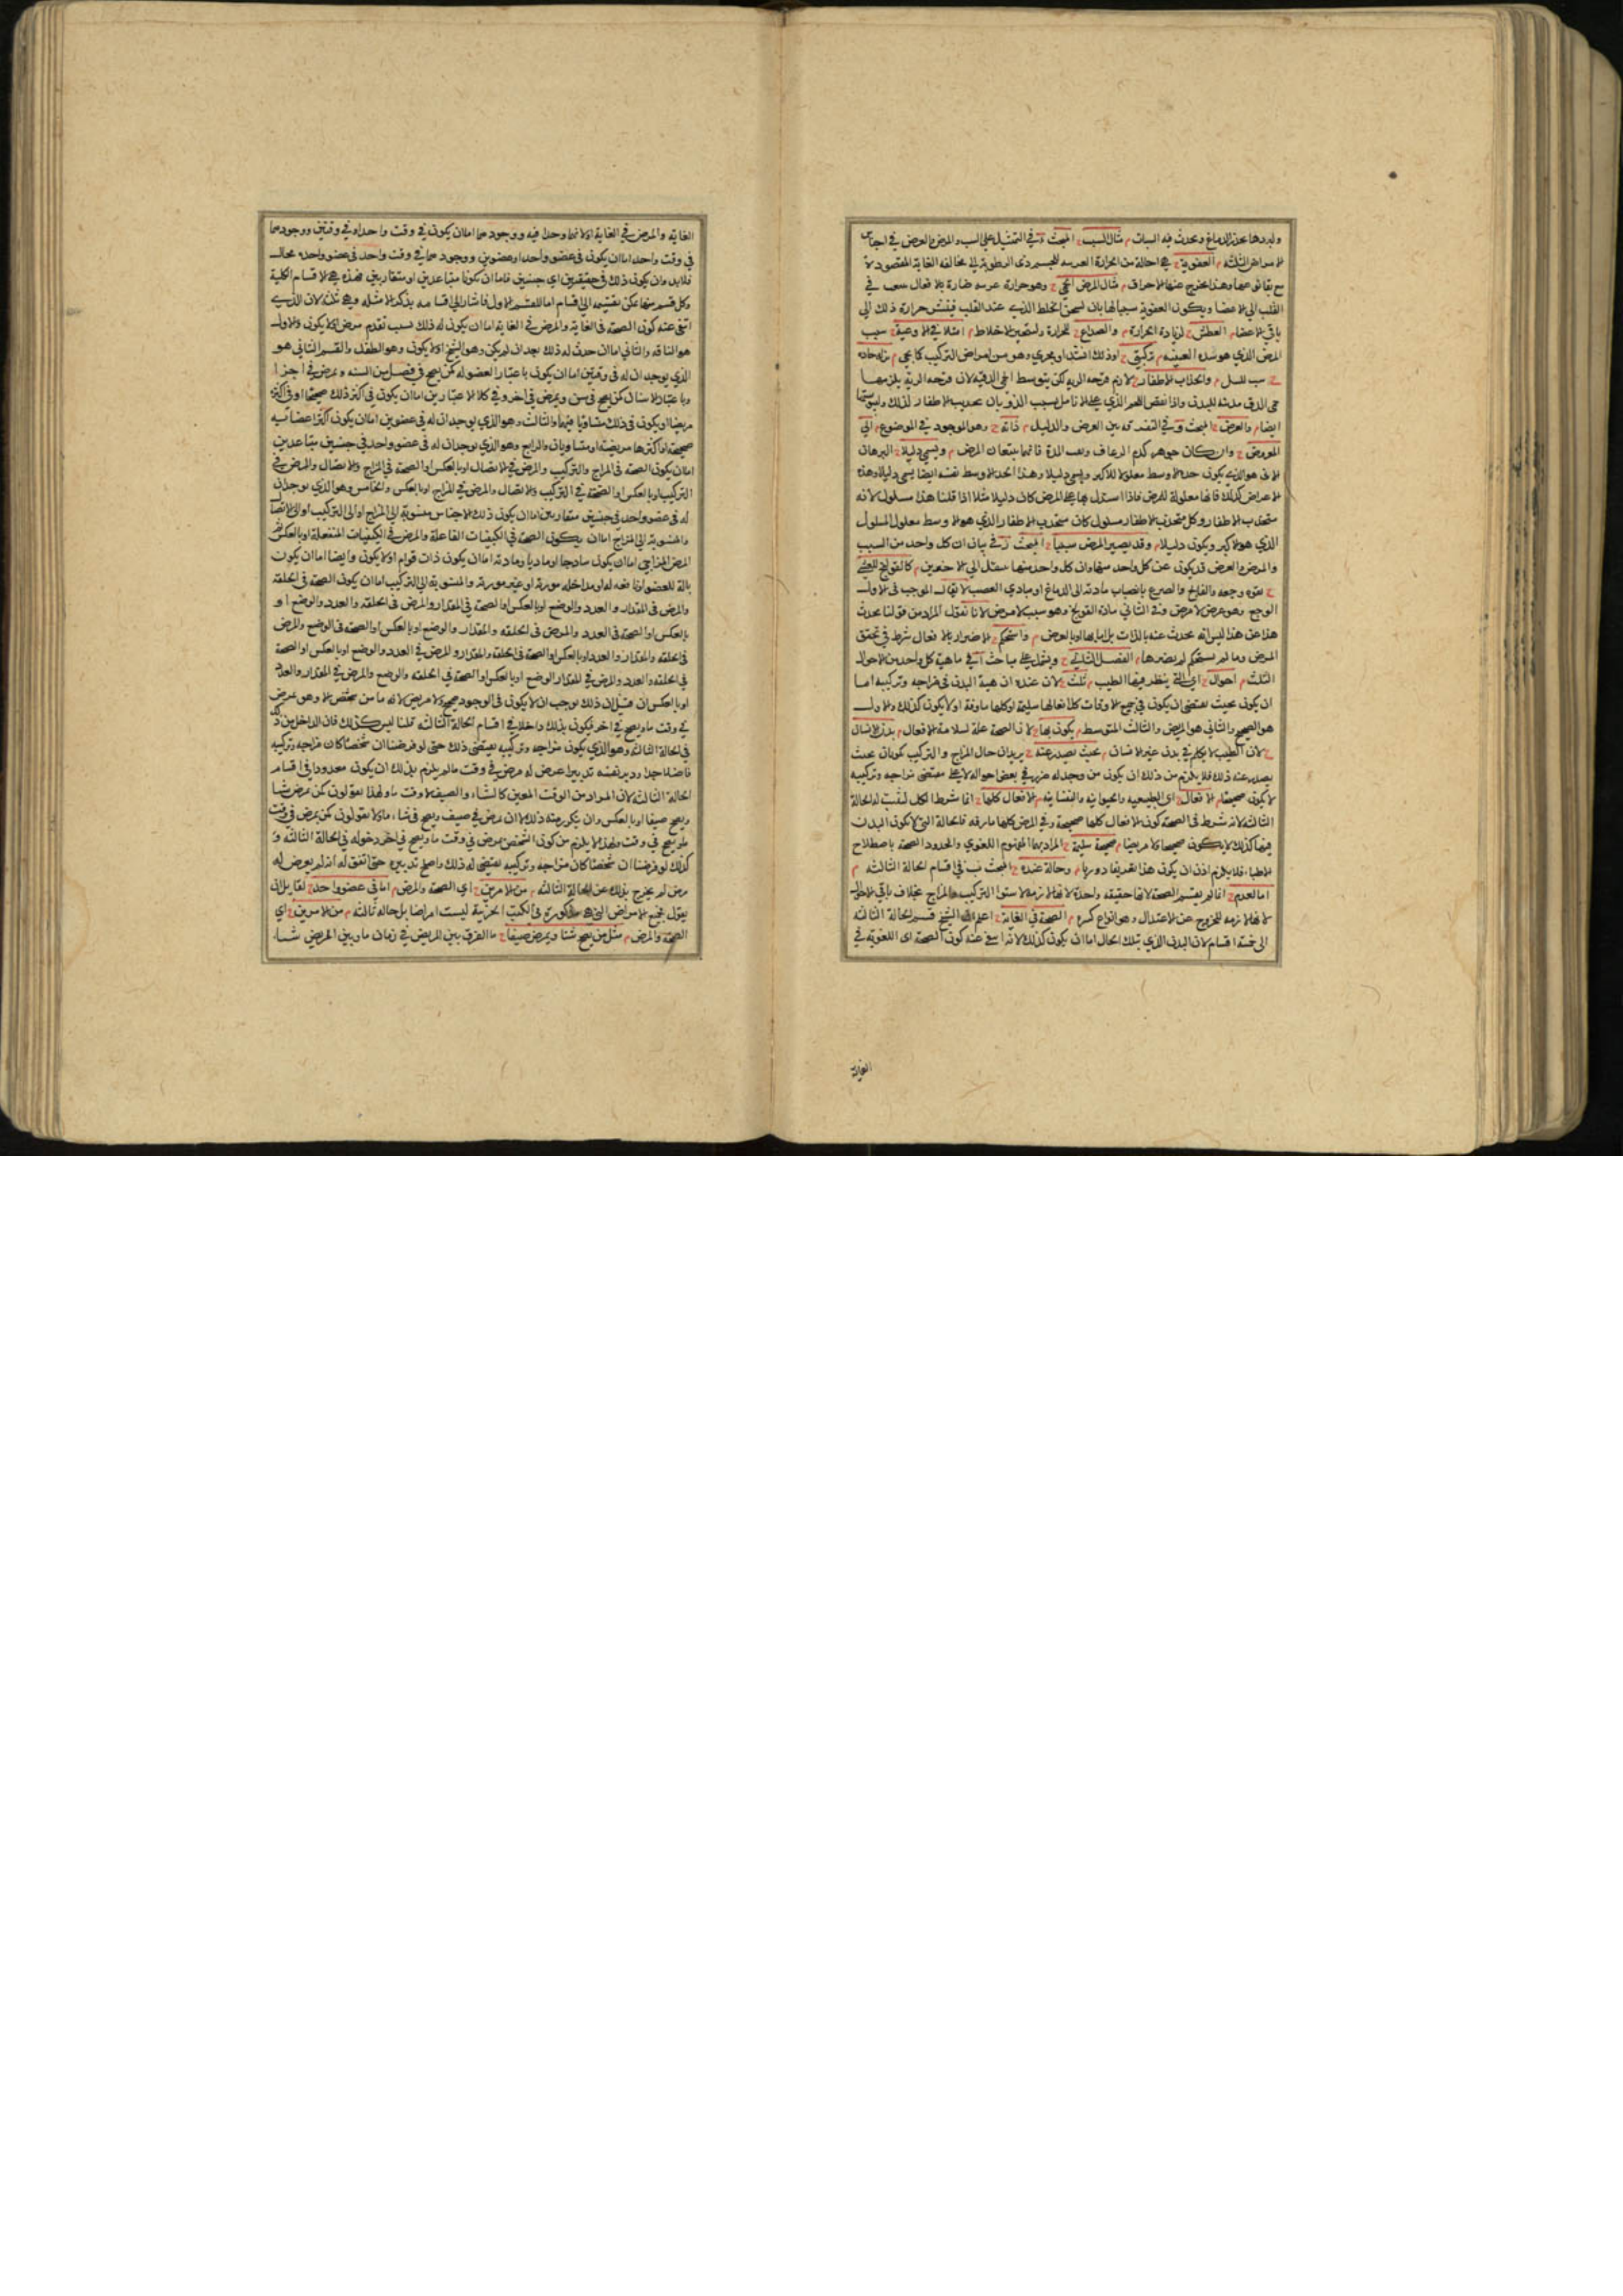 ولبردها يخدر الدماغ ويحدث فيه السبات م مثال السبب ح المبحث ه في التمثيل على السبب والمرض والعرض في اجناس
الامراض الثلثة م العفونة ح هي احالة من الحرارة للجسم ذي الرطوبة الى مخالفة الغاية المقصودة
مع بقاء نوعها وهذا يخرج عنها الاحراق م مثال المرض الحمى ح وهو حرارة ضارة بالافعال في
القلب الى الاعضا ويكون العفونة سببا لها بان يسخن الخلط الذي عند القلب فيفشو حرارة ذلك الى
باقي الاعضا م العطش ح لزيادة الحرارة م والصداع ح للحرارة ولتبخير الاخلاط م امتلا في الاوعية ح سبب
المرض الذي هو سدة العينيه م تركيبي ح اذ ذلك انسداد مجرى وهو من امراض التركيب كما يجي م
ح سبب للسل م وانحداب الاظفار ح لازم قرحة الرية لكن بتوسط الحمى الدقية لان قرحة الرية يلزمها
حمى الدق مذيبة للبدن واذا نقص اللحم الذي على الانامل بسبب الذوبان تحدبت الاظفار لذلك
ايضا م والعرض ح المبحث و في التفرقة بين العرض والدليل م ذاته ح وهو الموجود في الموضوع م الى
المعروض ح وان كان جوهر كدم الرعاف المدة فانهما يتبعان المرض م ويسمى دليلا ح البرهان
الاني هو الذي يكون حده الاوسط معلولا للاكبر ويسمى دليلا وهذا الحد الاوسط نفسه ايضا يسمى دليلا وهذه
الاعراض كذلك فانها معلولة للمرض فاذا استدل بها على المرض كان دليلا مثلا اذا قلنا هذا مسلول لانه
متحدب الاظفار وكل متحدب الاظفار مسلول كان متحدب الاظفار الذي هو الاوسط معلول المسلول
الذي هو الاكبر ويكون دليلا م وقد يصير المرض سببا ح المبحث ز في بيان ان كل واحد من السبب
والمرض والعرض قد يكون عن كل واحد منها وان كل واحد منها ينتقل الى الاخرين م كالقولنج للغشي
ح بقوة وجعه والفالج والصرع بانصباب مادته الى الدماغ او مبادي العصب لا يقال الموجب في الاول
الوجع وهو عرض لا مرض وفي الثاني مادة القولنج وهو سبب لا مرض لانا نقول المراد من قولنا يحدث
هذا عن هذا ليس انه يحدث عنه بالذات بل اما بها او بالعرض م واستحكم ح الاضرار بالافعال شرط في تحقق
المرض وما لم يستحكم لم يضرها م الفصل الثاني ح ويشتمل على مباحث آ في ماهية كل واحد من الاحوال
الثلث م احوال ح اي التي ينظر فيها الطبيب م ثلث ح لان عنده ان هيئة البدن في مزاجه وتركيبه اما
ان يكون بحيث يقتضي ان يكون في جميع الاوقات كل افعالها سليمة او كلها ماوفة او لا يكون كذلك والاول
هو الصحيح والثاني هو المريض والثالث المتوسط م يكون بها ح لان الصحة علة لسلامة الافعال م بدن الانسان
ح لان الطبيب لا يتكلم في بدن غير الانسان م بحيث يصدر عنه ح يريد ان حال المزاج والتركيب يكونان بحيث
يصدر عنه ذلك فلا يلزم من ذلك ان يكون من وجد له ضرر في بعض احواله لا على مقتضى مزاجه وتركيبه
لا يكون صحيحا م الافعال ح اي الطبيعية والحيوانية والنفسانية م الافعال كلها ح انما شرط الكل ليثبت له الحالة
الثالثة لانه شرط في الصحة كون الافعال كلها صحيحة وفي المرض كلها ماوفة فالحالة التي لا يكون البدن
فيها كذلك لا يكون صحيحا ولا مريضا م صحيحة سليمة ح المراد بها المفهوم اللغوي والمحدود الصحة باصطلاح
الاطبا فلا يلزم اذن ان يكون هذا تعريفا دوريا م وحالة عنده ح المبحث ب في اقسام الحالة الثالثة م
اما لعدم ح انما لم يقسم الصحة لانها حقيقة واحدة لانها لازمة لاستواء التركيب والمزاج بخلاف باقي الاحوال
لانها لازمة للخروج عن الاعتدال وهو انواع كثيرة م الصحة في الغاية ح اعلم ان الشيخ قسم الحالة الثالثة
الى خمسة اقسام لان البدن الذي بتلك الحال اما ان يكون كذلك لانه انتفى عنه كون الصحة اي اللغوية في
الغاية
الغاية والمرض في الغاية او لانهما وجدا فيه ووجودهما اما ان يكون في وقت واحد او في وقتين ووجودهما
في وقت واحد اما ان يكون في عضو واحد او عضوين ووجودهما في وقت واحد في عضو واحد محال
فلا بد وان يكون ذلك في جنسين فاما ان يكونا متباعدين او متقاربين فهذه هي الاقسام الكلية
وكل قسم منها يمكن تقسيمه الى اقسام اما القسم الاول فاشار الى اقسامه بذكر الامثلة وهي ثلثة لان الذي
انتفى عنه كون الصحة في الغاية والمرض في الغاية اما ان يكون له ذلك بسبب تقدم مرض او لا يكون والاول
هو الناقه والثاني اما ان حدث له ذلك بعد ان لم يكن وهو الشيخ او لا يكون وهو الطفل والقسم الثاني هو
الذي يوجدان له في وقتين اما ان يكون باعتبار الفصول كمن يصح في فصل من السنة ويمرض في آخر ا
وباعتبار الاسنان كمن يصح في سن ويمرض في آخر وفي كلا الاعتبارين اما ان يكون في اكثر ذلك صحيحا او في اكثره
مريضا او يكون في ذلك متساويا فيهما والثالث وهو الذي يوجدان له في عضوين اما ان يكون اكثر اعضائه
صحيحة او اكثرها مريضة او متساويان والرابع وهو الذي يوجدان له في عضو واحد في جنسين متباعدين
اما ان يكون الصحة في المزاج والتركيب والمرض في الاتصال او بالعكس او الصحة في المزاج والاتصال والمرض في
التركيب او بالعكس او الصحة في التركيب والاتصال والمرض في المزاج او بالعكس والخامس وهو الذي يوجدان
له في عضو واحد في جنسين متقاربين اما ان يكون ذلك الاجناس منسوبة الى المزاج او الى التركيب او الى الاتصال
والمنسوبة الى المزاج اما ان يكون الصحة في الكيفيات الفاعلة والمرض في الكيفيات المنفعلة او بالعكس ثم
المرض المزاجي اما ان يكون ساذجا او ماديا ومادته اما ان يكون ذات قوام او لا يكون وايضا اما ان يكون
بالة للعضو او نافعة له او مداخلة مورمة او غير مورمة والمنسوبة الى التركيب اما ان يكون الصحة في الخلقة
والمرض في المقدار والعدد والوضع او بالعكس او الصحة في المقدار والمرض في الخلقة والعدد والوضع او
بالعكس او الصحة في العدد والمرض في الخلقة والمقدار والوضع او بالعكس او الصحة في الوضع والمرض
في الخلقة والمقدار والعدد او بالعكس او الصحة في الخلقة والمقدار والمرض في العدد والوضع او بالعكس او الصحة
في الخلقة والعدد والمرض في المقدار والوضع او بالعكس او الصحة في الخلقة والوضع والمرض في المقدار والعدد
او بالعكس فان قيل ان ذلك يوجب ان لا يكون في الوجود صحيح ولا مريض لانه ما من شخص الا وهو يمرض
في وقت ما ويصح في اخر فيكون بذلك داخلا في اقسام الحالة الثالثة قلنا ليس كذلك فان الداخل من ذلك
في الحالة الثالثة وهو الذي يكون مزاجه وتركيبه يقتضي ذلك حتى لو فرضنا ان شخصا كان مزاجه وتركيبه
فاضلا جدا ودبر نفسه تدبيرا عرض له مرض في وقت ما لم يلزم بذلك ان يكون معدودا في اقسام
الحالة الثالثة لان المراد من الوقت المعين كالشتاء والصيف لا وقت ما ولهذا يقولون كمن يمرض شتا
ويصح صيفا او بالعكس وان يتكرر منه ذلك لا ان يمرض في صيف ويصح في شتاء ما ولا يقولون كمن يمرض في وقت
ما ويصح في وقت ولهذا لا يلزم من كون الشخص مرض في وقت ما ويصح في اخر دخوله في الحالة الثالثة و
كذلك لو فرضنا ان شخصا كان مزاجه وتركيبه يقتضي له ذلك واصلح تدبيره حتى اتفق له انه لم يعرض له
مرض لم يخرج بذلك عن الحالة الثالثة م من الامرين ح اي الصحة والمرض م اما في عضو واحد ح لقايل ان
يقول جميع الامراض التي هي مذكورة في الكتب الجزئية ليست امراضا بل حالة ثالثة م من الامرين ح اي
الصحة والمرض م مثل من يصح شتا ويمرض صيفا ح ما الفرق بين المريض في زمان ما وبين المريض شتا